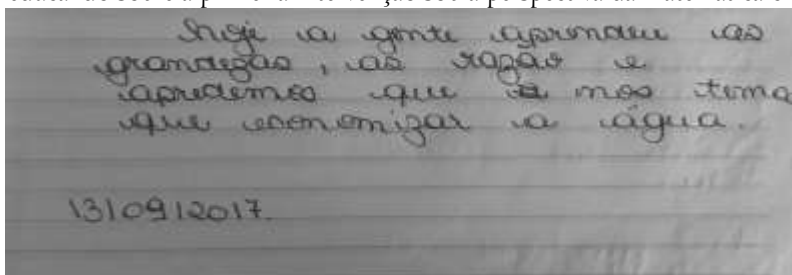 hoje a gente aprendeu as
grandezas, as razão e
apredemos que nos tema
que economizar a água.
13/09/2017.